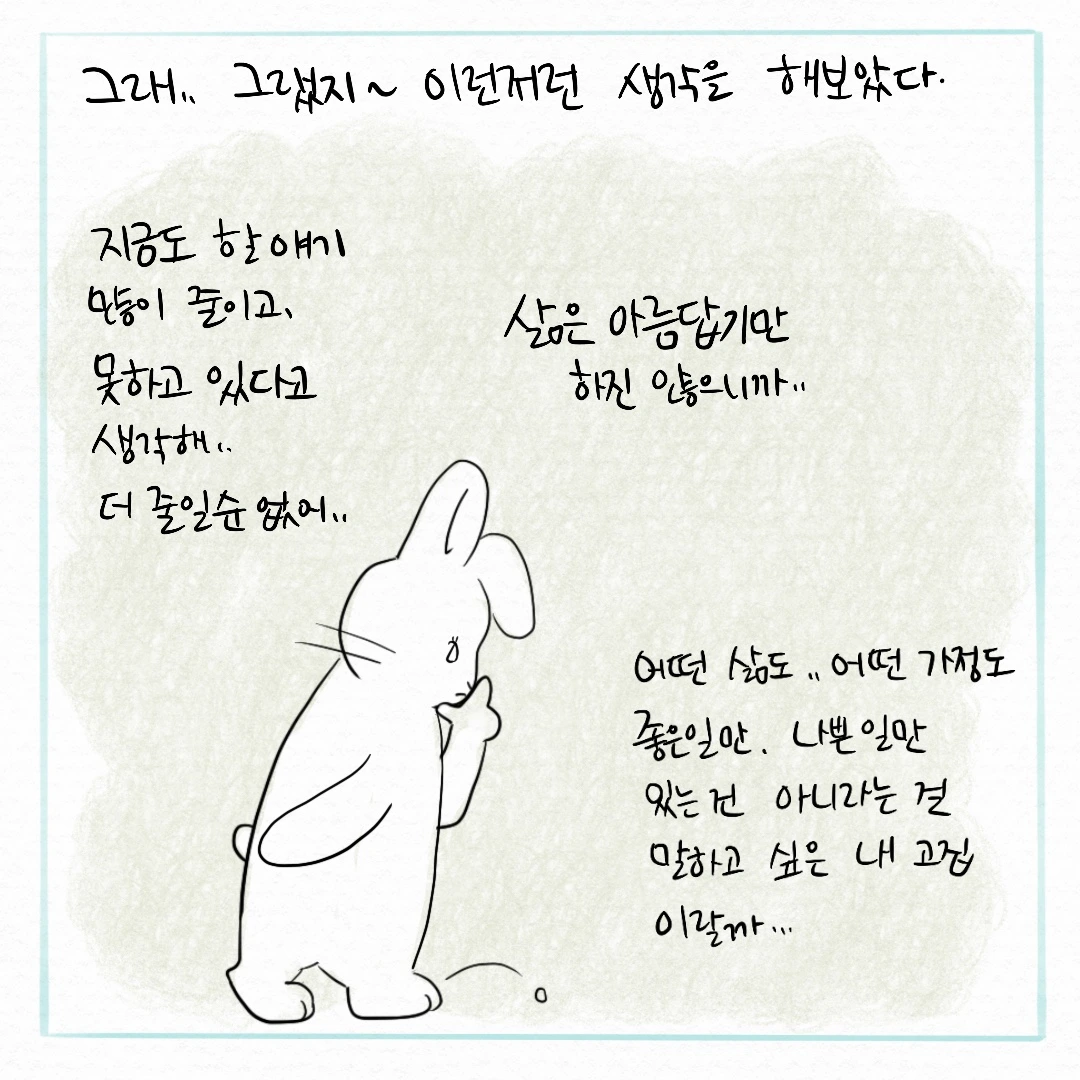 그래.. 그랬지~ 이런저런 생각을 해보았다.
지금도 할 얘기
많이 줄이고,
못하고 있다고
생각해..
더 줄일순 없어..
삶은 아름답기만
하진 않으니까..
어떤 삶도.. 어떤 가정도
좋은일만. 나쁜일만
있는건 아니라는 걸
말하고 싶은 내 고집
이랄까...